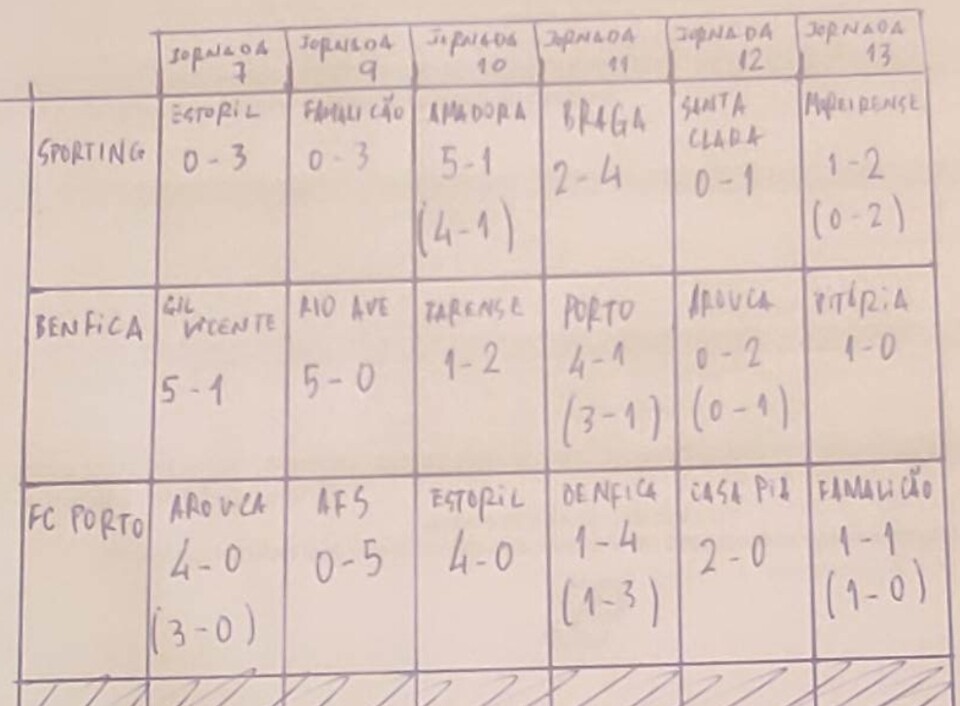 JORNADA JORNADA JORNADA JORNADA JORNADA JORNADA
7 9 10 11 12 13
SPORTING
ESTORIL
0-3
FAMALICÃO
0-3
AMADORA
5-1
(4-1)
BRAGA
2-4
SANTA
CLARA
0-1
MOREIRENSE
1-2
(0-2)
BENFICA
GIL
VICENTE
5-1
RIO AVE
5-0
FARENSE
1-2
PORTO
4-1
(3-1)
AROUCA
0-2
(0-1)
VITÓRIA
1-0
FC PORTO
AROUCA
4-0
(3-0)
AFS
0-5
ESTORIL
4-0
BENFICA
1-4
(1-3)
CASA PIA
2-0
FAMALICÃO
1-1
(1-0)